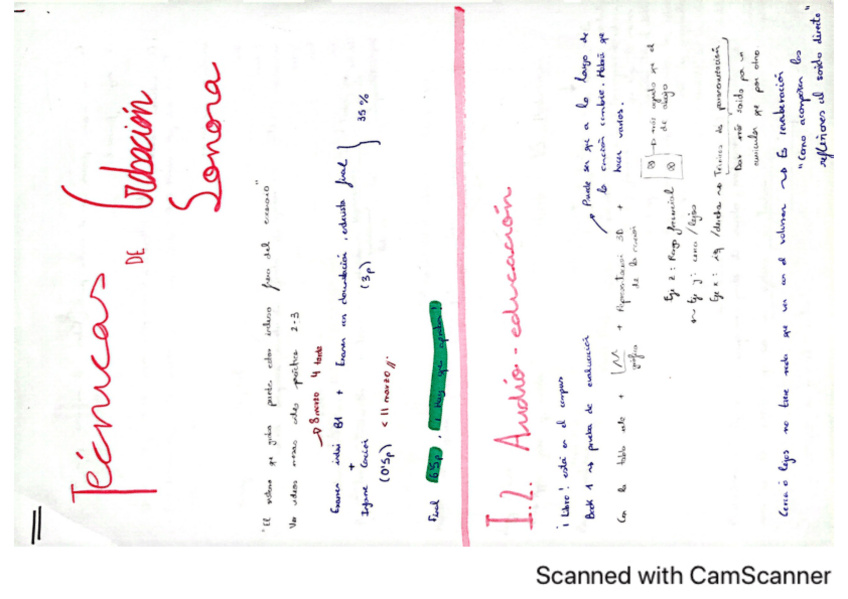 Técnicas
DE Grabación
Sonora
"El sistema que graba puede estar incluso fuera del escenario"
Ver videos micros antes práctica 2-3
8 marzo 4 tarde
Examen inicial B1 + Examen con documentación, estudio final } 35%
+ (3p)
Informe Canción
(0'5p) < 11 marzo //.
Final (6'5p), ¡ hay que aprobar!
I.2. Audio-educación
¡ Libro ! está en el campus
Book 1 → prueba de evaluación
Puede ser que a lo largo de
la canción cambie. Habrá que
hacer varios.
Con la tabla esta + gráfica + Representación 3D +
de la
más agudo que el
de abajo
Eje z: Rango frecuencial
Eje y: cerca / lejos
Eje x: izq / derecha → Técnicas de panoramización
Dar más sonido por un
auricular que por otro
Cerca o lejos no tiene nada que ver con el volumen → Es reverberación
"Como acompañan las
reflexiones al sonido directo"
Scanned with CamScanner